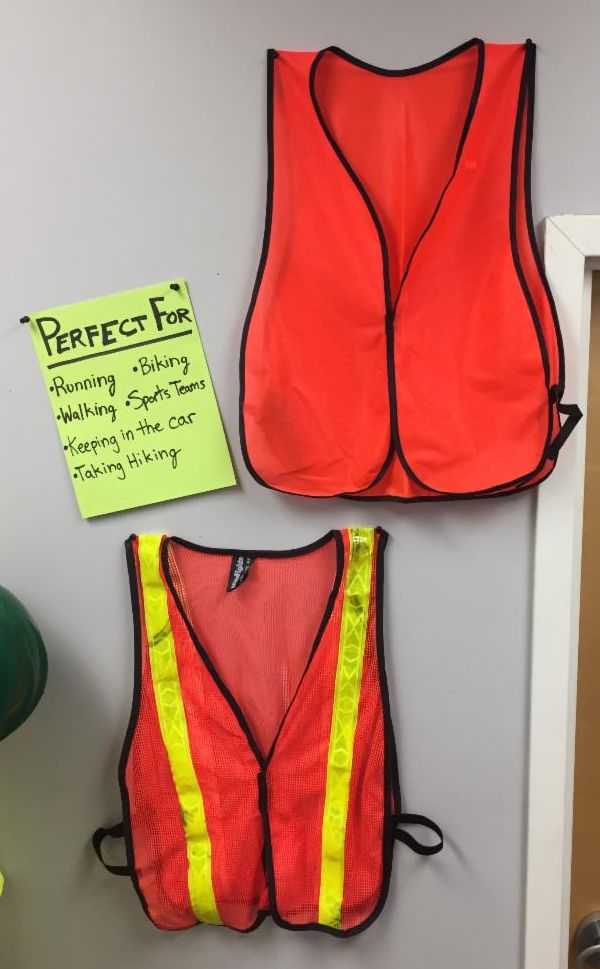 PERFECT FOR
•Running •Biking
•Walking •Sports Teams
•Keeping in the car
•Taking Hiking